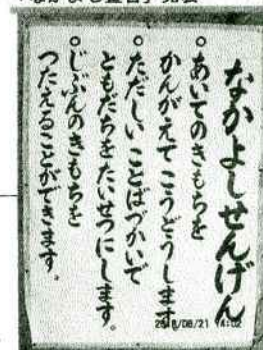 なかよしせんげん
○あいてのきもちを
かんがえてこうどうします
○ただしいことばづかいで
ともだちをたいせつにします。
○じぶんのきもちを
つたえることができます。